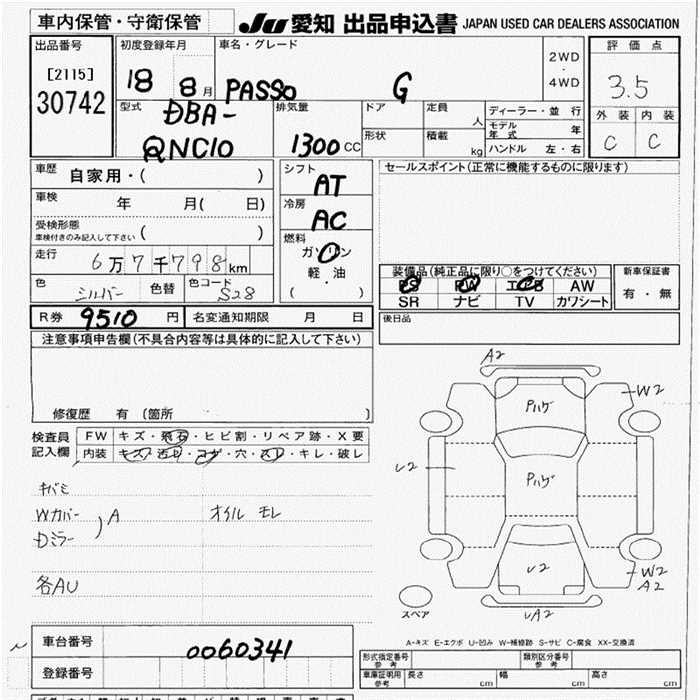 車内保管・守衛保管
JU 愛知 出品申込書 JAPAN USED CAR DEALERS ASSOCIATION
出品番号
[2115]
30742
初度登録年月
18 8月
車名・グレード
PASSO G
2WD
・
4WD
評価点
3.5
外装 内装
C C
型式
DBA-
QNC10
排気量
1300 CC
ドア
定員
人
形状
積載
kg
ディーラー・並行
モデル年式 年
ハンドル 左・右
車歴
自家用・( )
車検
年 月( 日)
受検形態
車検付きのみ記入して下さい ( )
走行
6万7千798km
色
シルバー
色替
色コード
S28
シフト
AT
冷房
AC
燃料
ガソリン
軽油
・
( )
セールスポイント(正常に機能するものに限ります)
装備品(純正品に限り○をつけてください)
PS PW エアB AW
SR ナビ TV カワシート
新車保証書
有・無
後日品
R券 9510 円
名変通知期限 月 日
注意事項申告欄(不具合内容等は具体的に記入して下さい)
修復歴 有 (箇所 )
検査員
記入欄
FW キズ・飛石・ヒビ割・リペア跡・X要
内装 キズ・汚レ・コゲ・穴・スレ・キレ・破レ
キバミ
Wカバー
Dミラー
) A
オイル モレ
各AU
A2
W2
Pハゲ
U2
Pハゲ
U2
W2
A2
UA2
スペア
A-キズ E-エクボ U-凹み W-補修跡 S-サビ C-腐食 XX-交換済
車台番号
0060341
登録番号
型式指定番号
参考
類別区分番号
参考
車庫証明用
参考
長さ cm
幅 cm
高さ cm